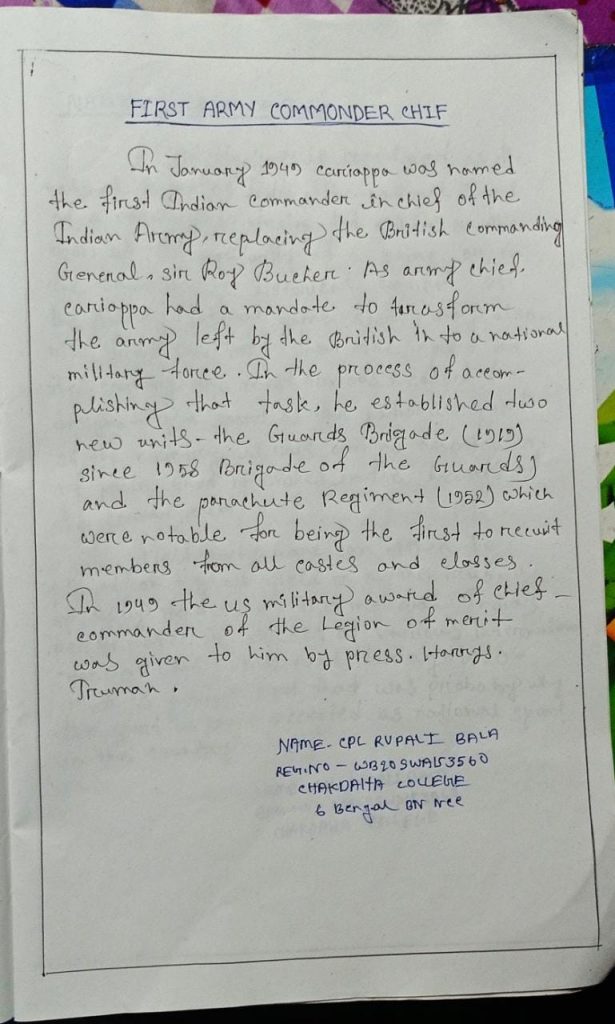 FIRST ARMY COMMONDER CHIF
In January 1949 cariappa was named
the first Indian commander in chief of the
Indian Army, replacing the British commanding
General, sir Roy Bucher. As army chief.
cariappa had a mandate to transform
the army left by the British in to a national
military force. In the process of accom-
plishing that task, he established two
new units - the Guards Brigade (1919)
since 1958 Brigade of the Guards)
and the parachute Regiment (1952) which
were notable for being the first to recruit
members from all castes and classes.
In 1949 the us military award of chief -
commander of the Legion of merit
was given to him by press. Harrys.
Truman.
NAME- CPL RUPALI BALA
REG.NO - WB20SWA153560
CHAKDAHA COLLEGE
6 Bengal BN NCC